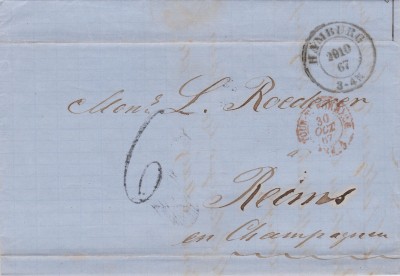 HAMBURG
2910
67
3-4N
Mons. L. Roederer
30
OCT
67
6
à
Reims
en Champagne